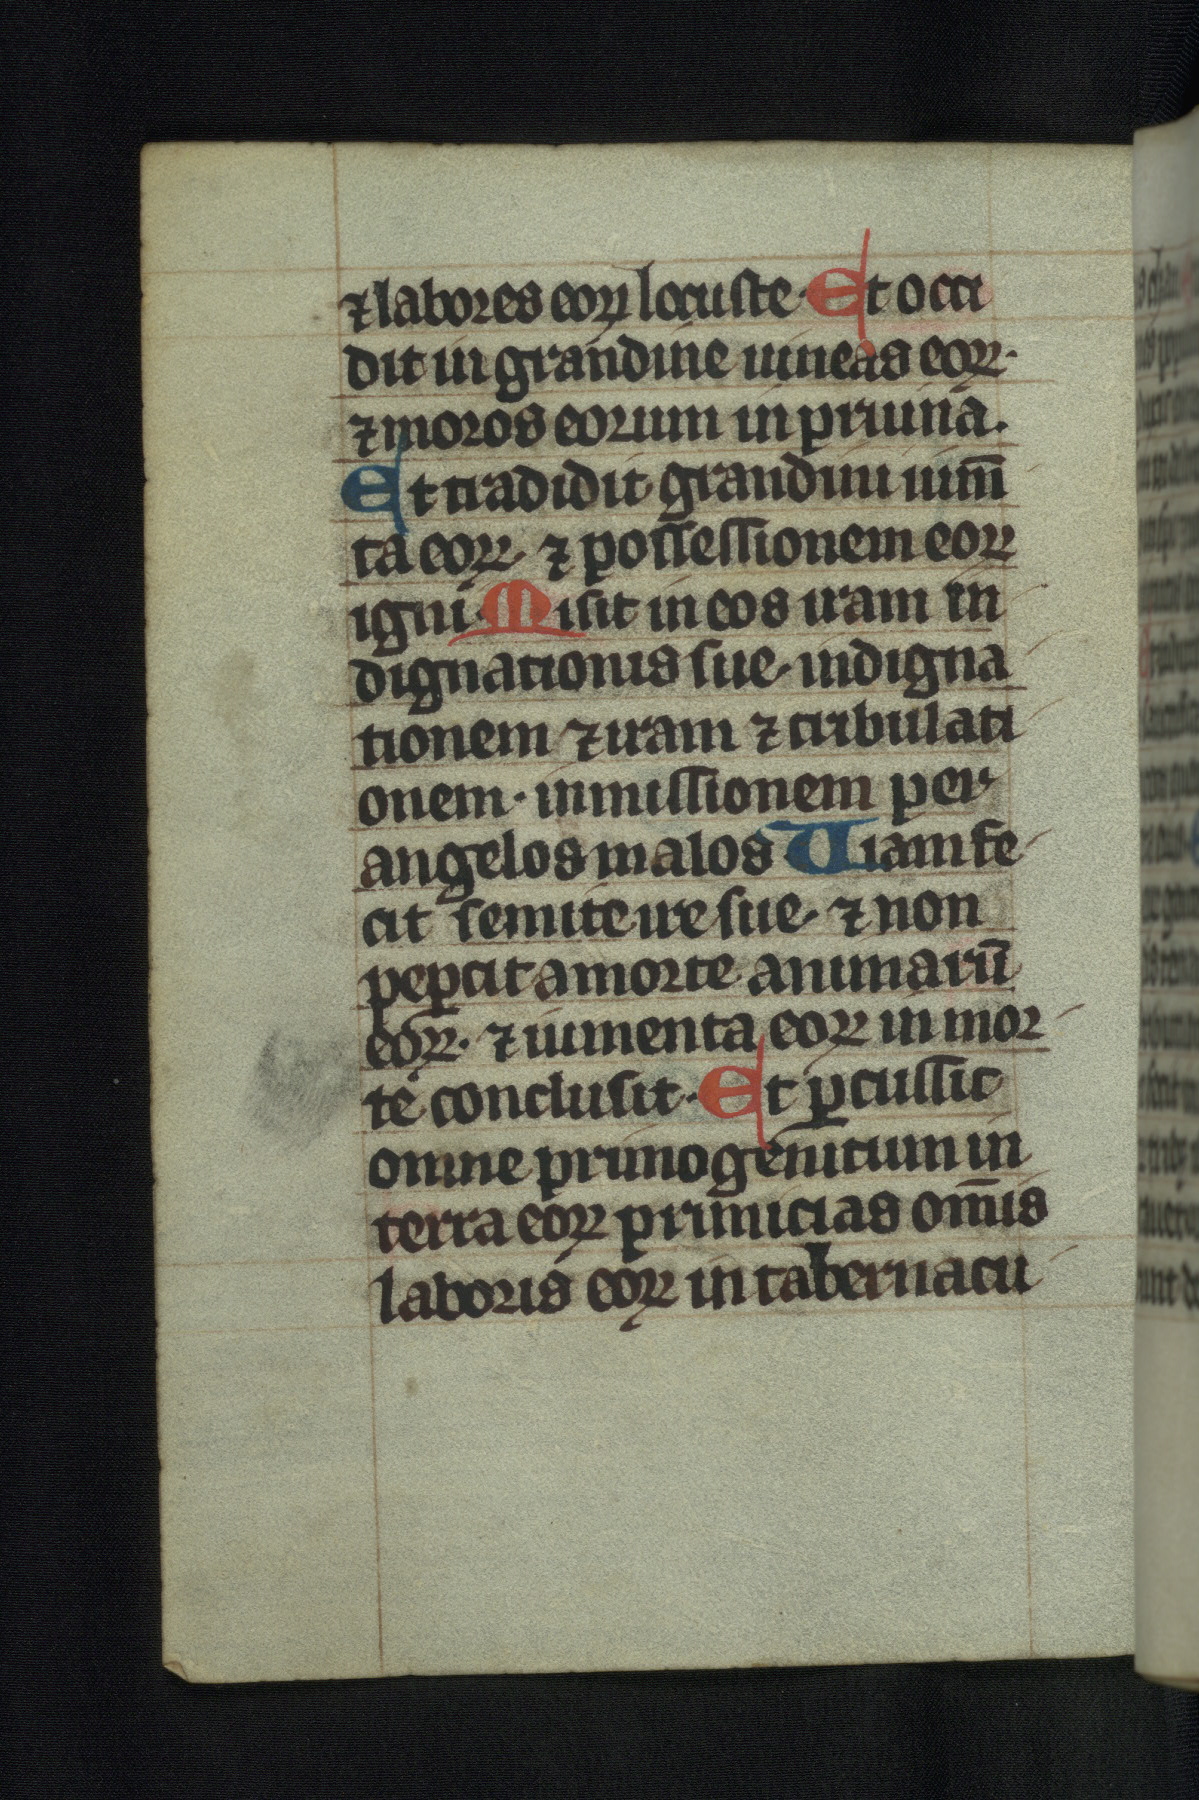 ⁊ labores eoꝝ locuste· Et occi
dit in grandine uineas eoꝝ·
⁊ moros eorum in pruina.
Et tradidit grandini ium̄
ta eoꝝ· ⁊ possessionem eoꝝ
igni· Misit in eos iram in
dignationis sue· indigna
tionem ⁊ iram ⁊ tribulati
onem· inmissionem per
angelos malos Uiam fe
cit semite ire sue· ⁊ non
pepcit a morte animarū
eoꝝ· ⁊ iumenta eoꝝ in mor
te conclusit· Et ꝑcussit
omne primogenitum in
terra eoꝝ primicias om̄is
laboris eoꝝ in tabernacu